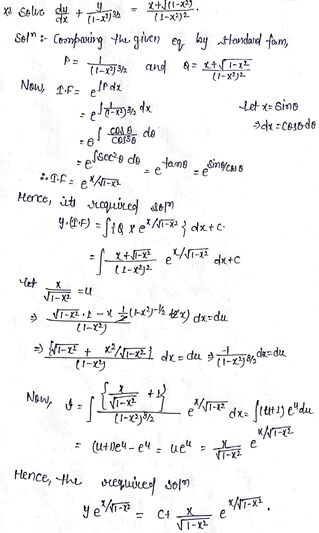 x) Solve dy/dx + y/(1-x²)^3/2 = x+√(1-x²)/(1-x²)².
Solⁿ :- Comparing the given eq by standard form,
P = 1/(1-x²)^3/2 and Q = x+√1-x²/(1-x²)²
Now, I.F = e^∫P dx
Let x = sinθ
= e^∫1/(1-x²)^3/2 dx
⇒ dx = cosθ dθ
= e^∫ cosθ/cos³θ dθ
= e^∫sec²θ dθ = e^tanθ = e^sinθ/cosθ
∴ I.F = e^x/√1-x²
Hence, its required solⁿ
y.(I.F) = ∫{Q x e^x/√1-x²} dx + c.
= ∫ x+√1-x²/(1-x²)² e^x/√1-x² dx + c
let x/√1-x² = u
⇒ √1-x² · 1 - x 1/2 (1-x²)^-1/2 (2x)/(1-x²) dx = du
⇒ {√1-x² + x²/√1-x²}/(1-x²) dx = du ⇒ 1/(1-x²)^3/2 dx = du
Now, I = ∫ {x/√1-x² + 1}/(1-x²)^3/2 e^x/√1-x² dx = ∫(u+1) e^u du
= (u+1)e^u - e^u = ue^u = x/√1-x² e^x/√1-x²
Hence, the required solⁿ
y e^x/√1-x² = c + x/√1-x² e^x/√1-x².